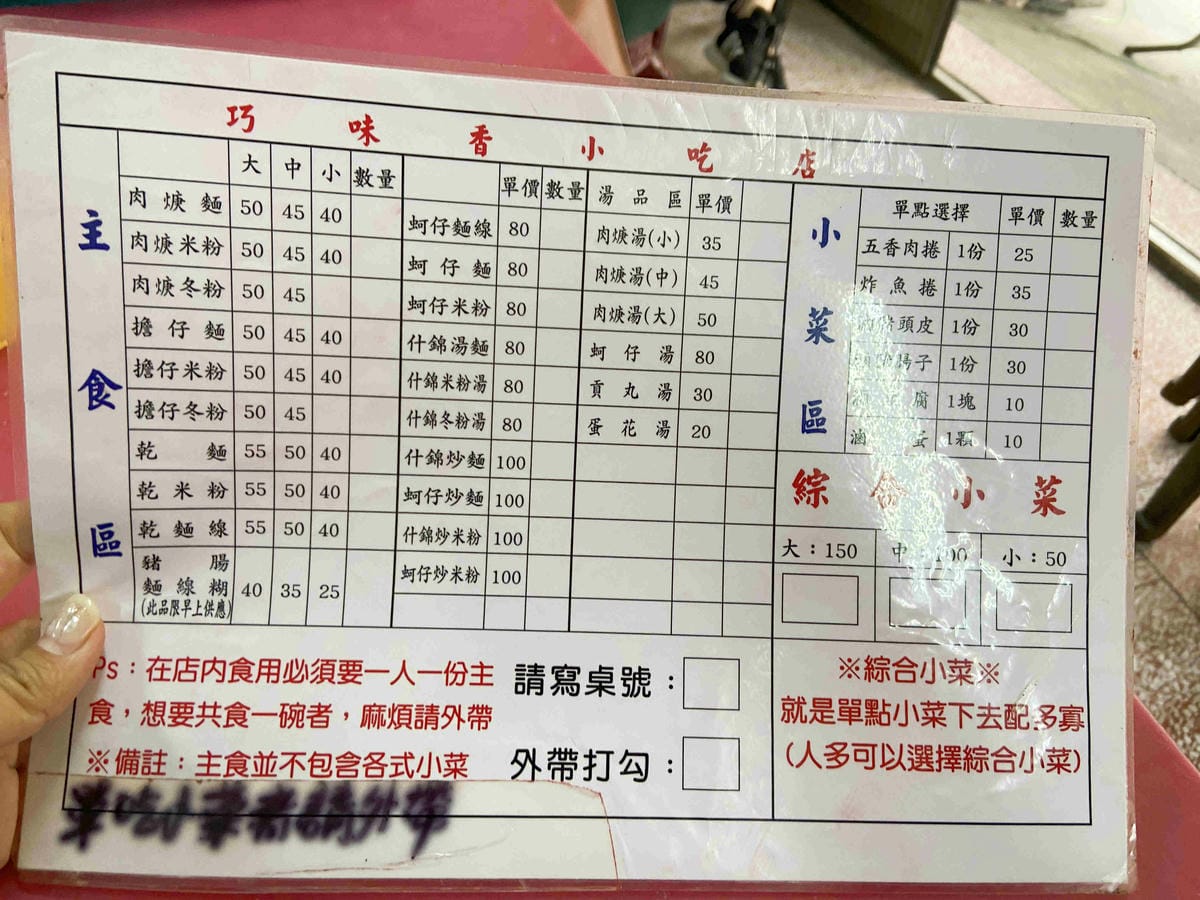 巧味香小吃店
主食區
大 中 小 數量
肉焿麵 50 45 40
肉焿米粉 50 45 40
肉焿冬粉 50 45
擔仔麵 50 45 40
擔仔米粉 50 45 40
擔仔冬粉 50 45
乾麵 55 50 40
乾米粉 55 50 40
乾麵線 55 50 40
豬腸
麵線糊 40 35 25
(此品限早上供應)
單價 數量
蚵仔麵線 80
蚵仔麵 80
蚵仔米粉 80
什錦湯麵 80
什錦米粉湯 80
什錦冬粉湯 80
什錦炒麵 100
蚵仔炒麵 100
什錦炒米粉 100
蚵仔炒米粉 100
湯品區 單價
肉焿湯(小) 35
肉焿湯(中) 45
肉焿湯(大) 50
蚵仔湯 80
貢丸湯 30
蛋花湯 20
小菜區
單點選擇 單價 數量
五香肉捲 1份 25
炸魚捲 1份 35
豬頭皮 1份 30
腸子 1份 30
腐 1塊 10
滷蛋 1顆 10
綜合小菜
大：150 中：100 小：50
Ps：在店內食用必須要一人一份主
食，想要共食一碗者，麻煩請外帶
※備註：主食並不包含各式小菜
請寫桌號：
外帶打勾：
※綜合小菜※
就是單點小菜下去配多寡
(人多可以選擇綜合小菜)